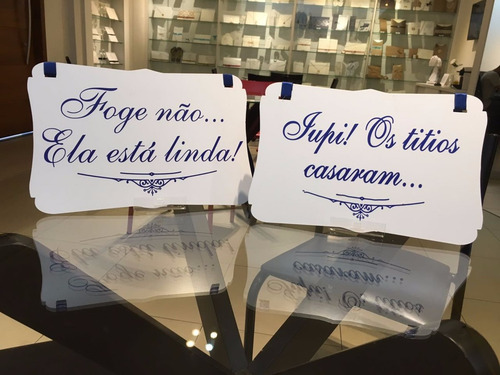 Foge não...
Ela está linda!
Iupi! Os titios
casaram...